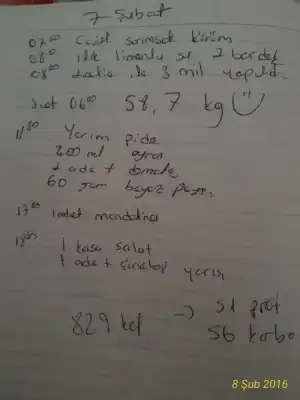 7 Şubat
07:00 sarımsak kürüm
08:00 ılık limonlu su 2 bardak
08:00 ile 3 mil yapıldı
Saat 06:00 58,7 kg
11:30 Yarım pide
200 ml ayran
1 adet domates
60 gram beyaz peynir
17:00 1 adet mandalina
1 kase salata
1 adet yarım
829 kal → 51 prot
56 karbo
8 Şub 2016